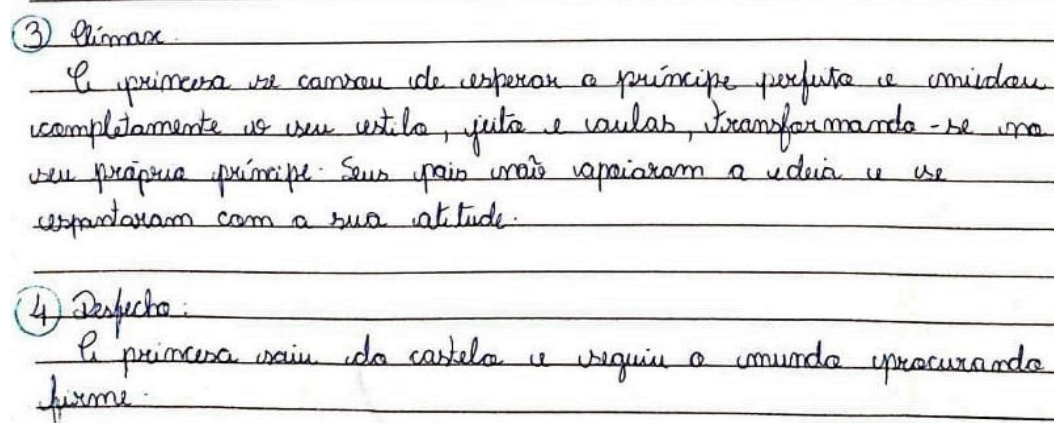 3 Clímax.
A princesa se cansou de esperar o príncipe perfeito e mudou
completamente o seu estilo, jeito e aulas, transformando-se no
seu próprio príncipe. Seus pais não apoiaram a ideia e se
espantaram com a sua atitude.
4 Desfecho:
A princesa saiu do castelo e seguiu o mundo procurando
firme.